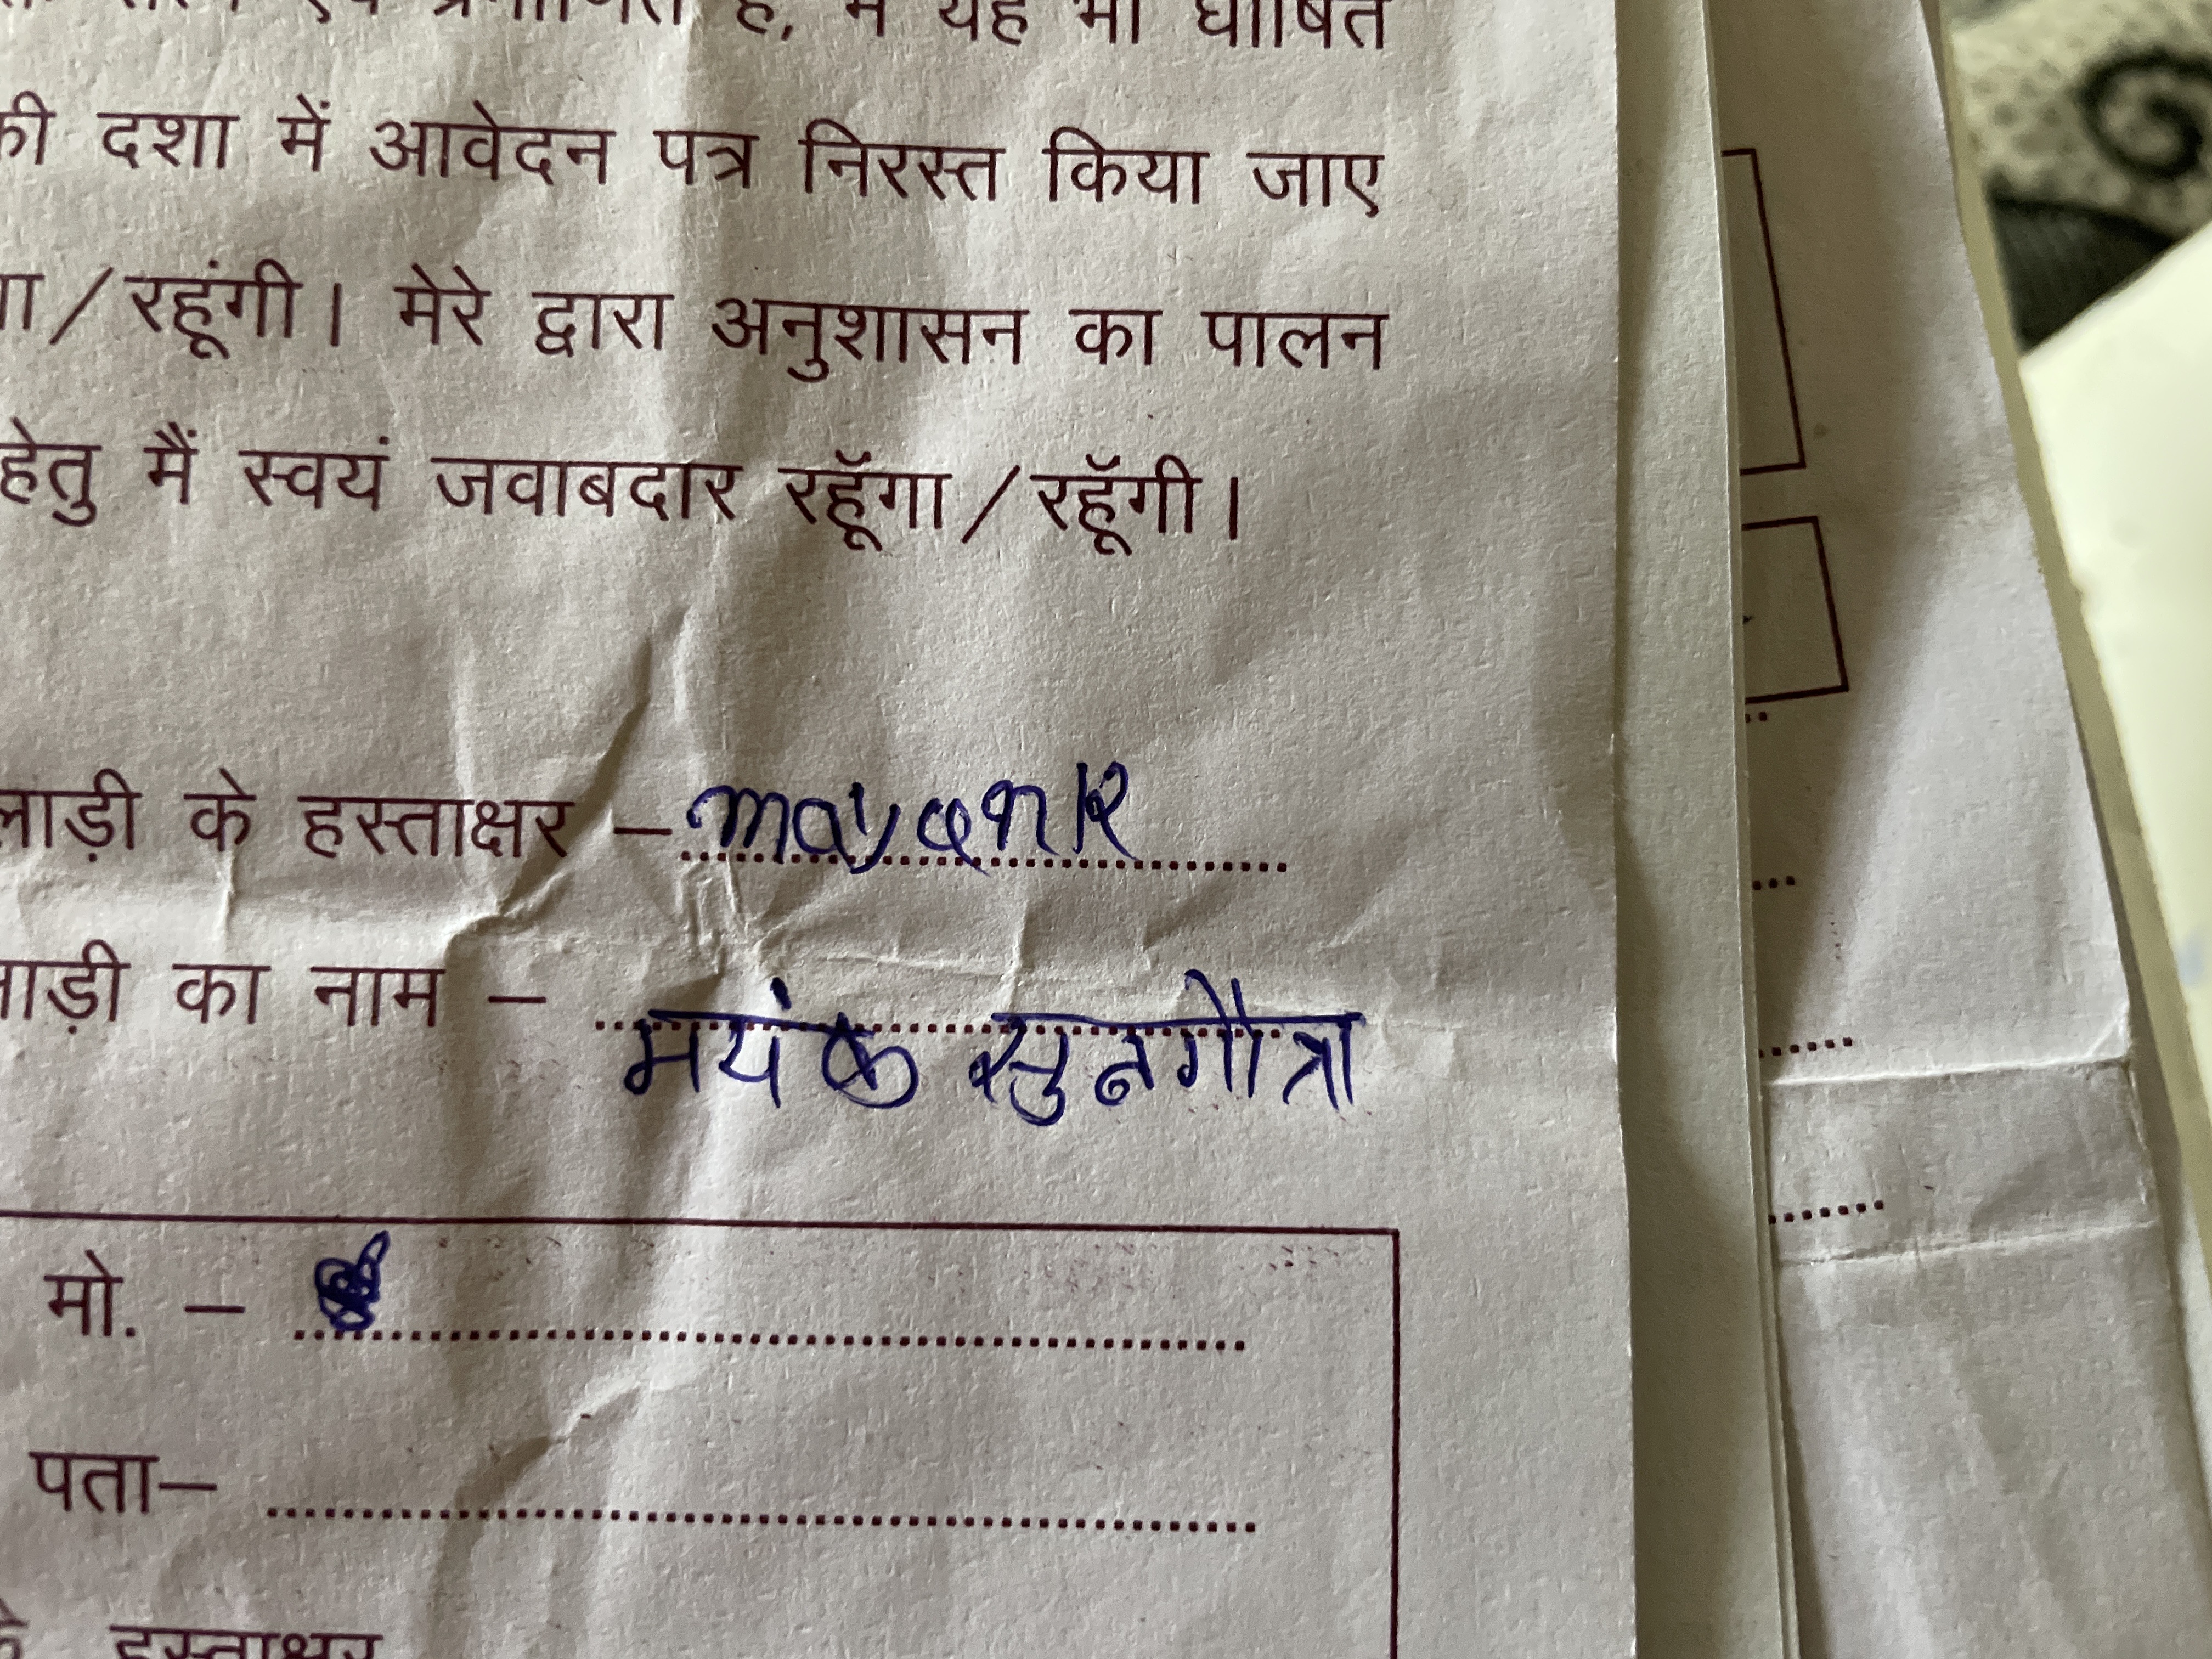 है, मैं यह भी घोषित
की दशा में आवेदन पत्र निरस्त किया जाए
गा/रहूंगी। मेरे द्वारा अनुशासन का पालन
हेतु मैं स्वयं जवाबदार रहूॅगा/रहूॅगी।
लाड़ी के हस्ताक्षर – mayank
लाड़ी का नाम – मयंक सुनगौत्रा
मो. –
पता–
हस्ताक्षर